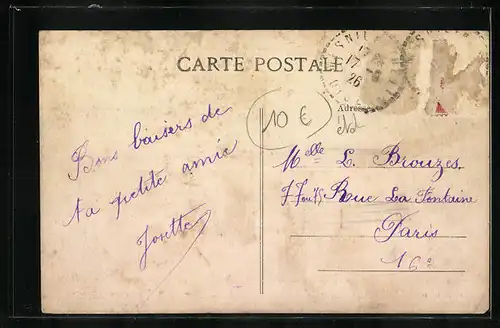 CARTE POSTALE
17
26
Adresse
10 €
Bons baisers de
ta petite amie
Josette
Melle L. Brouzes
77 ou 75 Rue La Fontaine
Paris
16e